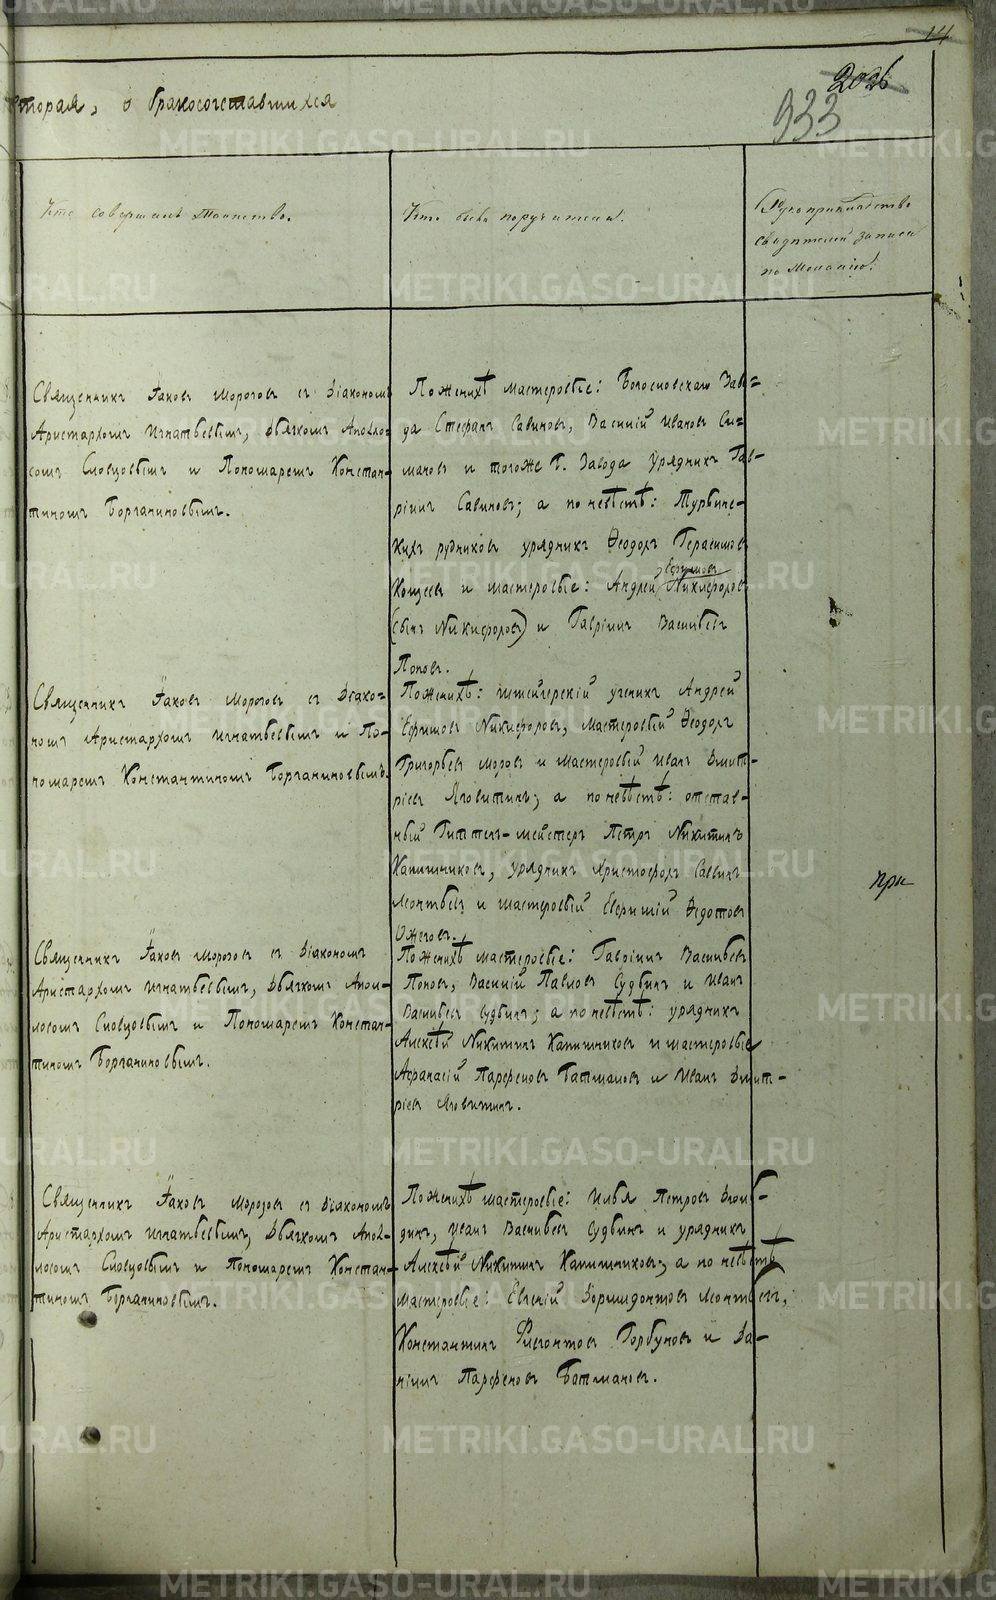 14
202
933
вторая, о бракосочетавшихся
Кто совершалъ Таинство.
Кто были поручители.
Рукоприкладство
свидѣтелей записи
по желанію.
Священникъ Іаковъ Морозовъ съ Діакономъ
Аристархомъ Игнатьевымъ, Дьячкомъ Аполло-
сомъ Словцовымъ и Пономаремъ Констан-
тиномъ Боргачиновымъ.
По женихѣ мастеровые: Богословскаго Заво=
да Стефанъ Савиновъ, Василій Ивановъ Си-
мановъ и тогоже Б. Завода Урядникъ Гав-
ріилъ Савиновъ; а по невѣстѣ: Турьинс-
кихъ рудниковъ урядникъ Ѳеодоръ Герасимовъ
Кощеевъ и мастеровые: Андрей Ефимовъ Никифоровъ
(сынъ Никифоровъ) и Гавріилъ Васильевъ
Поповъ.
Священникъ Іаковъ Морозовъ съ Діако=
номъ Аристархомъ Игнатьевымъ и По-
номаремъ Константиномъ Боргачиновымъ.
По женихѣ: штейгерскій ученикъ Андрей
Ефимовъ Никифоровъ, мастеровый Ѳеодоръ
Григорьевъ Моровъ и мастеровый Иванъ Дмит-
ріевъ Яговитинъ; а по невѣстѣ: отстав-
ный Гиттенъ-мейстеръ Петръ Никитинъ
Капишниковъ, урядникъ Христофоръ Саввинъ
Леонтьевъ и мастеровый Ефимій Ѳедотовъ
Ожеговъ.
при
Священникъ Іаковъ Морозовъ съ Діакономъ
Аристархомъ Игнатьевымъ, Дьячкомъ Апол-
лосомъ Словцовымъ и Пономаремъ Констан-
тиномъ Боргачиновымъ.
По женихѣ мастеровые: Гавріилъ Васильевъ
Поповъ, Василій Павловъ Судбинъ и Иванъ
Васильевъ Судбинъ; а по невѣстѣ: урядникъ
Алексѣй Никитинъ Капишниковъ и мастеровые
Афанасій Парфеновъ Батмановъ и Иванъ Дмит-
ріевъ Яговитинъ.
Священникъ Іаковъ Морозовъ съ Діакономъ
Аристархомъ Игнатьевымъ, Дьячкомъ Апол-
лосомъ Словцовымъ и Пономаремъ Констан-
тиномъ Боргачиновымъ.
По женихѣ мастеровые: Илья Петровъ
Иванъ Васильевъ Судбинъ и урядникъ
Алексѣй Никитинъ Капишниковъ; а по невѣстѣ
мастеровые: Евгеній Дормидонтовъ Леонтьевъ,
Константинъ Горбуновъ и Да-
ніилъ Парфеновъ Батмановъ.
METRIKI.GASO-URAL.RU